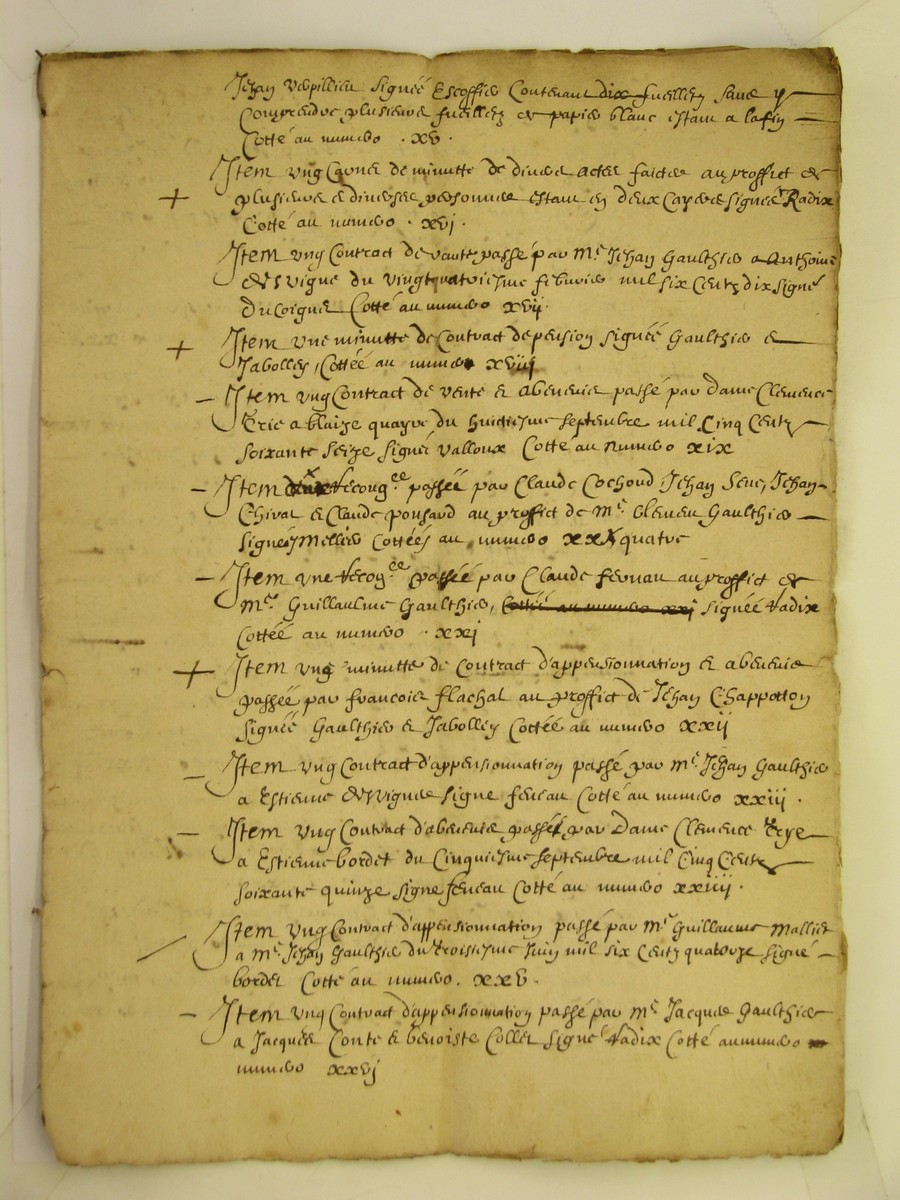 Jehan Verpillieu signée Escoffier Contenant dix fueilletz sans y
Comprendre plusieurs fueilletz de papier blanc estans a la fin
Cotté au numero . xv .
+ Item ung Cayer de minutte de divers actes faictes au proffict de
plusieurs & diverses personnes estans en deux Cayers signés Radix
Cotté au numero . xvj .
Item ung Contract de vante passé par Me Jehan Gaulthier a Anthoine
du vingtquatriesme febvrier mil six Centz dix signé
Cotté au numero xvij.
+ Item une minutte de Contract de pension signée Gaulthier &
Jabolley, Cottée au numero xviij
- Item ung Contract de vente & abenevis passé par Dame Clemence
a blaize du huictiesme septembre mil Cinq Centz
soixante seize signé valloux Cotté au numero xix
- Item recong.ce passée par Claude Cochoud Jehan Jehan
Chirat & Claude ponsard au proffict de Me Gaulthier
signées Mellier Cottées au numero xx quatre
- Item une recog.ce passée par Claude au proffict de
Me Guillaulme Gaulthier, Cottée au numero xxj signée Radix
Cottée au numero . xxj
+ Item ung minutte de Contract d'appensionnation & abenevis
passée par francois flachat au proffict de Jehan Chappotton
signée Gaulthier & Jabolley Cottée au numero xxij
- Item ung Contract d'appensionnation passé par Me Jehan Gaulthier
a Estienne signe Cotté au numero xxiij .
- Item ung Contract d'abenevis passé par Dame Clemence
a Estienne bordet du Cinquiesme septembre mil Cinq Centz
soixante quinze signe Cotté au numero xxiiij .
Item ung Contract d'appensionnation passé par Me Guillaume Mallier
a Me Jehan Gaulthier du troisiesme Juin mil six Centz quatorze signé
bordet Cotté au numero. xxv .
- Item ung Contract d'appensionnation passé par Me Jacques Gaulthier
a Jacques Conte & benoiste Collet signé Radix Cotté au numero
numero xxvj